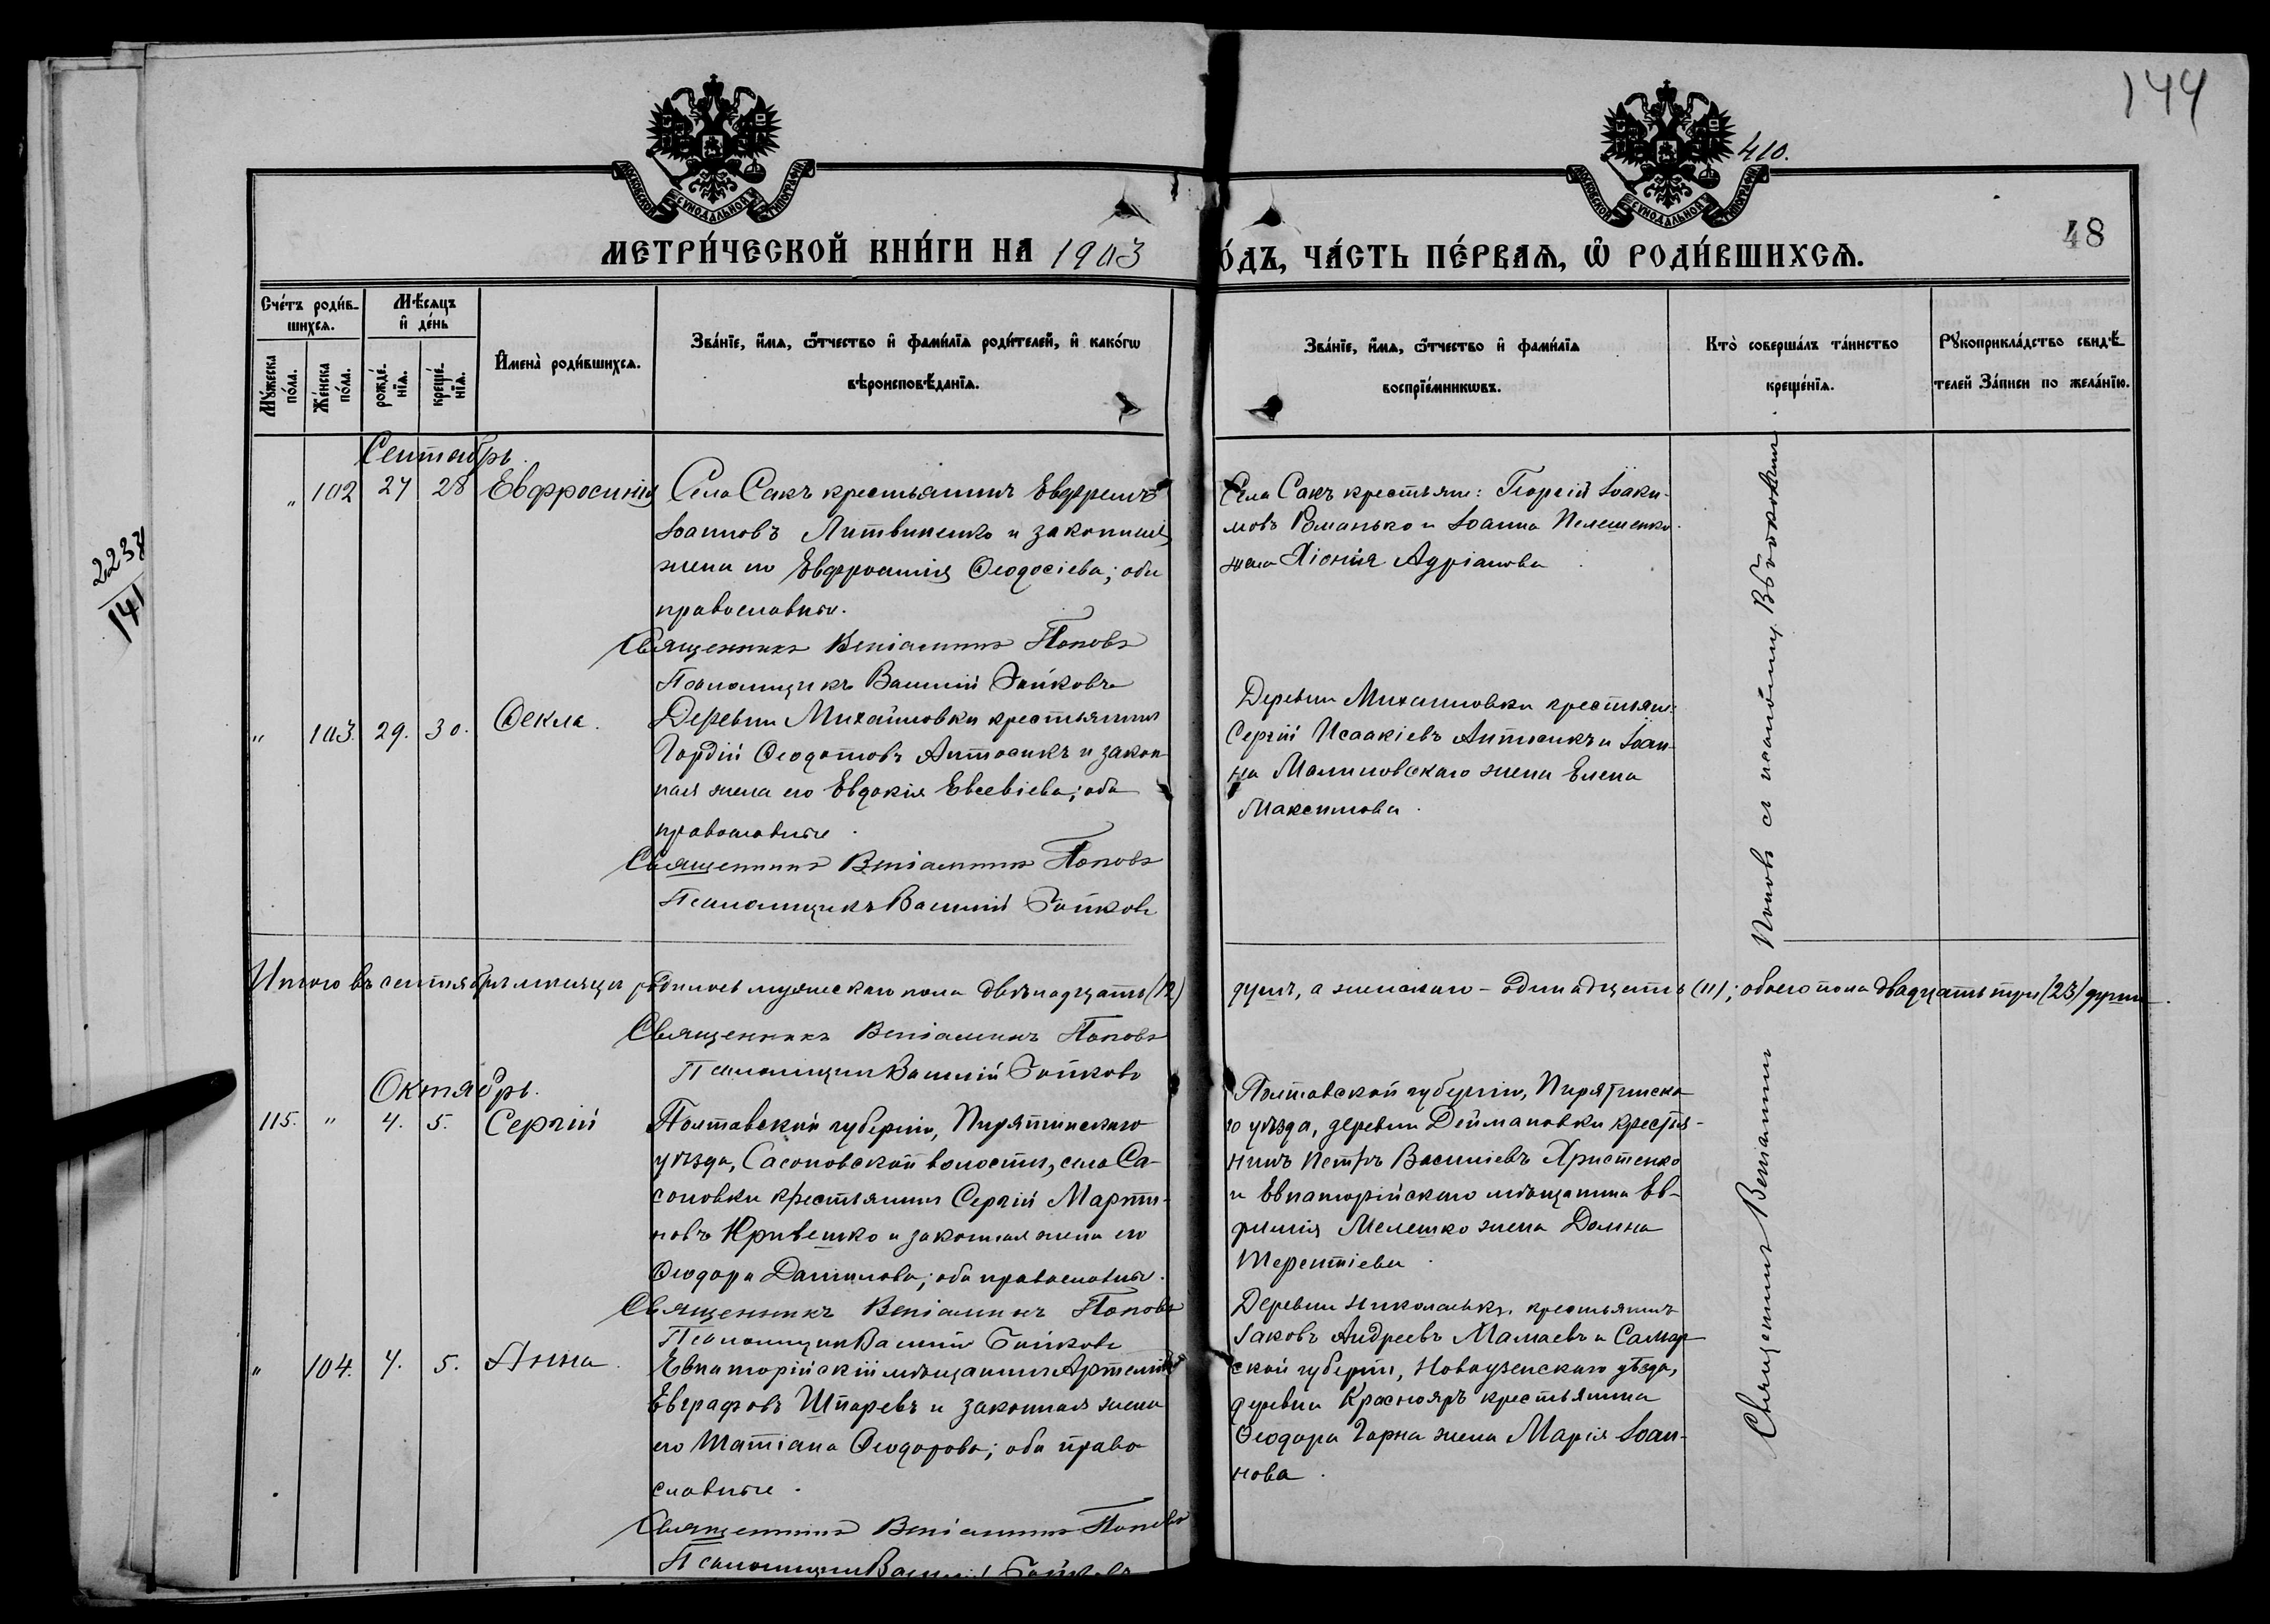 144
410.
48
МОСКОВСКОЙ СѴНОДАЛЬНОЙ ТИПОГРАФІИ
МОСКОВСКОЙ СѴНОДАЛЬНОЙ ТИПОГРАФІИ
МЕТРИ́ЧЕСКОЙ КНИ́ГИ НА 1903
О́ДЪ, ЧА́СТЬ ПЕ́РВАѦ, Ѡ҆ РОДИ́ВШИХСѦ.
Сче́тъ роди́в-
шихсѧ.
Мѣ́сѧцъ
и҆ де́нь
Мꙋ́жеска
по́ла.
Же́нска
по́ла.
рожде́-
нїѧ.
креще́-
нїѧ.
И҆мена̀ роди́вшихсѧ.
Зва́нїе, и҆́мѧ, ѻ҆́тчество и҆ фами́лїѧ роди́телей, и҆ како́гѡ
вѣроисповѣ́данїѧ.
Зва́нїе, и҆́мѧ, ѻ҆́тчество и҆ фами́лїѧ
воспрїе́мникѡвъ.
Кто̀ соверша́лъ та́инство
креще́нїѧ.
Рꙋкоприкла́дство свидѣ́-
телей за́писи по жела́нїю.
2237
141
Сентябрь.
" 102 27 28 Евфросинія
Села Сакъ крестьянинъ Евфремъ
Іоанновъ Литвиненко и законная
жена его Евфросинія Ѳеодосіева; оба
православные.
Священникъ Веніаминъ Поповъ
Псаломщикъ Василій Бойковъ
Села Сакъ крестьяне: Георгій Іоаки-
мовъ Романько и Іоанна Пелешенко
жена Хіонія Адріанова
" 103. 29. 30. Ѳекла.
Деревни Михайловки крестьянинъ
Гордій Ѳеодотовъ Антосикъ и закон-
ная жена его Евдокія Евсевіева; оба
православные.
Священникъ Веніаминъ Поповъ
Псаломщикъ Василій Бойковъ
Деревни Михайловки крестьяне:
Сергій Исаакіевъ Антосикъ и Іоан-
на Малиновскаго жена Елена
Максимова.
Итого въ сентябрѣ мѣсяцѣ родилось мужескаго пола двѣнадцать (12)
душъ, а женскаго - одинадцать (11); обоего пола двадцать три (23) души.
Священникъ Веніаминъ Поповъ
Псаломщикъ Василій Бойковъ
Октябрь.
115. " 4. 5. Сергій
Полтавской губерніи, Пирятинскаго
уѣзда, Сасоновской волости, села Са-
соновки крестьянинъ Сергій Марти-
новъ Кривешко и законная жена его
Ѳеодора Данилова; оба православные.
Священникъ Веніаминъ Поповъ
Псаломщикъ Василій Бойковъ
Полтавской губерніи, Пирятинска-
го уѣзда, деревни Деймановки крестья-
нинъ Петръ Василіевъ Христенко
и Евпаторійскаго мѣщанина Ев-
фимія Мелешко жена Домна
Терентіева.
" 104. 4. 5. Анна.
Евпаторійскій мѣщанинъ Артемій
Евграфовъ Шпаревъ и законная жена
его Татіана Ѳеодорова; оба право
славные.
Священникъ Веніаминъ Поповъ
Псаломщикъ Василій Бойковъ
Деревни Николаевки крестьянинъ
Іаковъ Андреевъ Мамаевъ и Самар-
ской губерніи, Новоузенскаго уѣзда,
деревни Краснояръ крестьянина
Ѳеодора Гарна жена Марія Іоан-
нова.
Священникъ Веніаминъ Поповъ съ псаломщ. Бойковымъ.